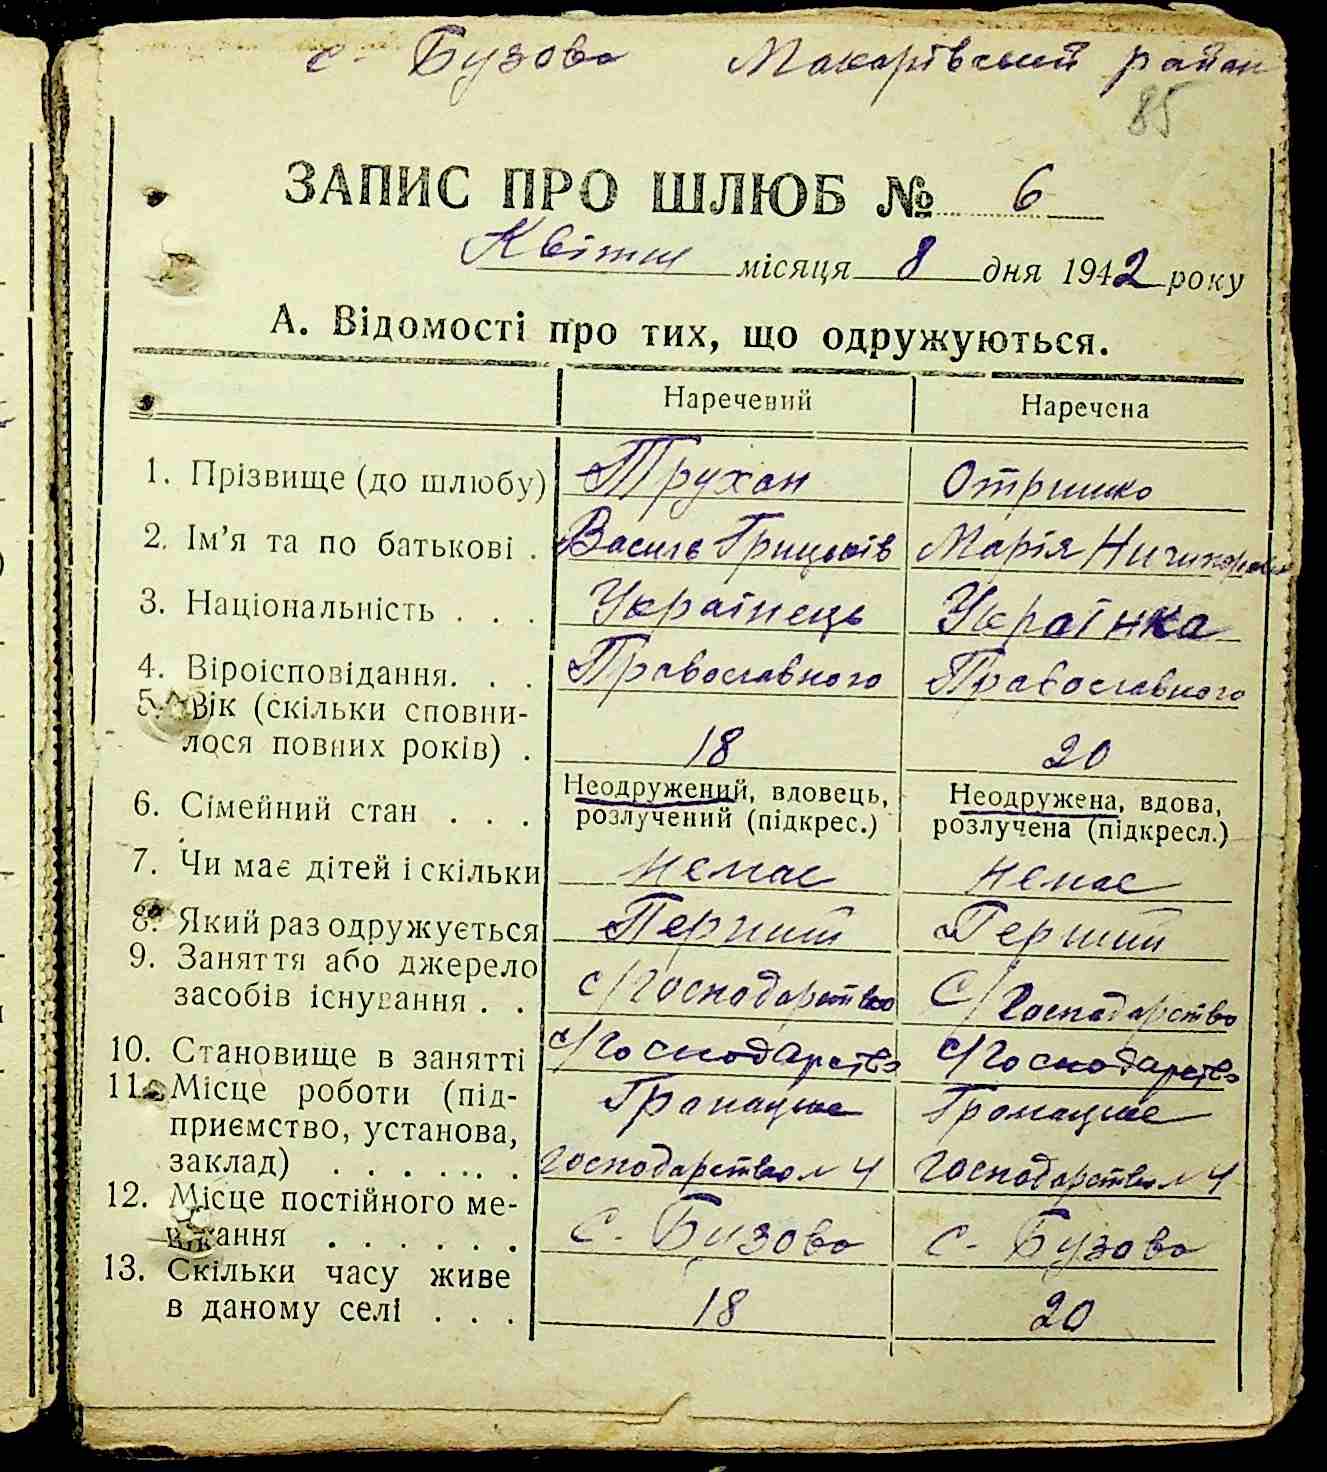 с. Бузова Макарівський район
85
ЗАПИС ПРО ШЛЮБ № 6
Квітня місяця 8 дня 1942 року
А. Відомості про тих, що одружуються.
Наречений Наречена
1. Прізвище (до шлюбу) Трухан Отришко
2. Ім'я та по батькові . Василь Грицьків Марія
3. Національність . . . Українець Українка
4. Віроісповідання. . . Православного Православного
5. Вік (скільки сповни-
лося повних років) . 18 20
6. Сімейний стан . . . Неодружений, вдовець, Неодружена, вдова,
розлучений (підкрес.) розлучена (підкресл.)
7. Чи має дітей і скільки немає немає
8. Який раз одружується Перший Перший
9. Заняття або джерело
засобів існування . . с/господарство с/господарство
10. Становище в занятті с/господарство с/господарство
11. Місце роботи (під-
приємство, установа,
заклад) . . . . . . Громадське Громадське
господарство № 4 господарство № 4
12. Місце постійного ме-
шкання . . . . . . с. Бузова с. Бузова
13. Скільки часу живе
в даному селі . . . 18 20